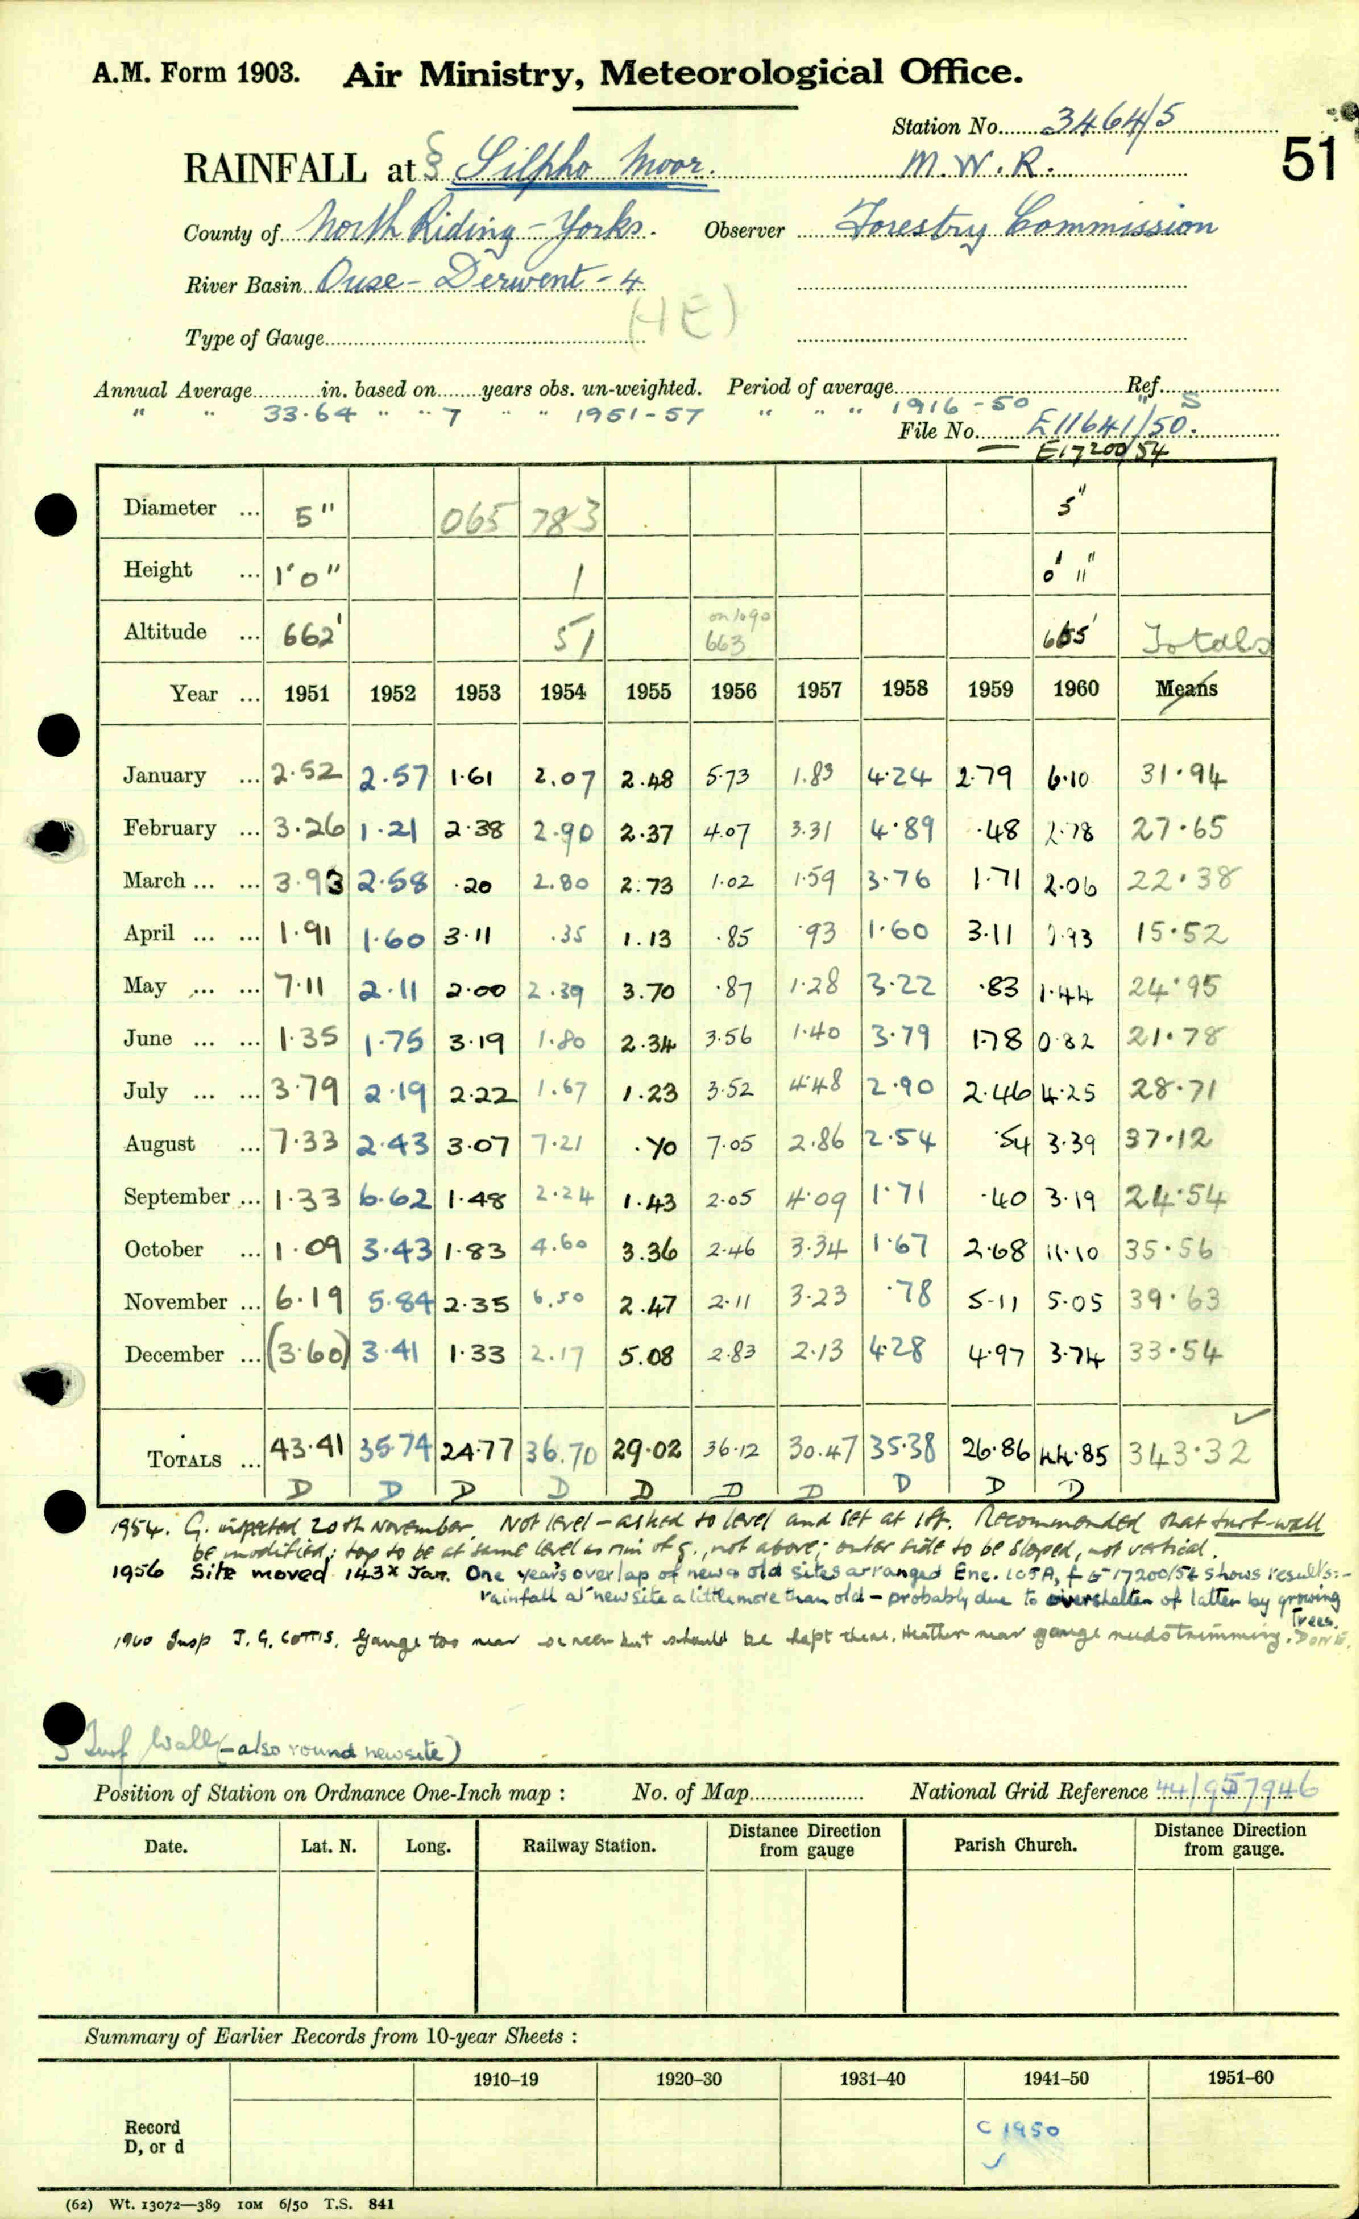 A.M. Form 1903. Air Ministry, Meteorological Office.
Station No. 3464/5
51
RAINFALL at § Silpho Moor. M.W.R.
County of North Riding - Yorks. Observer Forestry Commission
River Basin Ouse - Derwent - 4
(HE)
Type of Gauge
Annual Average in. based on years obs. un-weighted. Period of average Ref.
" " 33.64 " " 7 " " 1951-57 " " " 1916-50 " S
File No. E11641/50.
E17200/54
Diameter ... 5" 065 783 5"
Height ... 1'0" 1 0' 11"
Altitude ... 662' 51 663 665' Totals
Year ... 1951 1952 1953 1954 1955 1956 1957 1958 1959 1960 Means
January ... 2.52 2.57 1.61 2.07 2.48 5.73 1.83 4.24 2.79 6.10 31.94
February ... 3.26 1.21 2.38 2.90 2.37 4.07 3.31 4.89 .48 2.78 27.65
March ... ... 3.93 2.58 .20 2.80 2.73 1.02 1.59 3.76 1.71 2.06 22.38
April ... ... 1.91 1.60 3.11 .35 1.13 .85 .93 1.60 3.11 0.93 15.52
May ... ... 7.11 2.11 2.00 2.39 3.70 .87 1.28 3.22 .83 1.44 24.95
June ... ... 1.35 1.75 3.19 1.80 2.34 3.56 1.40 3.79 1.78 0.82 21.78
July ... ... 3.79 2.19 2.22 1.67 1.23 3.52 4.48 2.90 2.46 4.25 28.71
August ... 7.33 2.43 3.07 7.21 .70 7.05 2.86 2.54 .54 3.39 37.12
September ... 1.33 6.62 1.48 2.24 1.43 2.05 4.09 1.71 .40 3.19 24.54
October ... 1.09 3.43 1.83 4.60 3.36 2.46 3.34 1.67 2.68 11.10 35.56
November ... 6.19 5.84 2.35 6.50 2.47 2.11 3.23 .78 5.11 5.05 39.63
December ... (3.60) 3.41 1.33 2.17 5.08 2.83 2.13 4.28 4.97 3.74 33.54
TOTALS ... 43.41 35.74 24.77 36.70 29.02 36.12 30.47 35.38 26.86 44.85 343.32
D D D D D D D D D D
1954. G. inspected 20th November. Not level - asked to level and set at 1ft. Recommended that turf-wall
be modified; top to be at same level as rim of g., not above; outer side to be sloped, not vertical.
1956 Site moved 143x Jan. One year's overlap of new & old sites arranged Enc. 105A, 17200/54 shows results:-
rainfall at new site a little more than old - probably due to overshelter of latter by growing
trees.
1960 Insp J. G. Cottis. Gauge too near but should be kept there. Heather near gauge needs trimming. Done.
§ Turf Wall (- also round new site)
Position of Station on Ordnance One-Inch map : No. of Map National Grid Reference 44/957946
Date. Lat. N. Long. Railway Station. Distance Direction from gauge Parish Church. Distance Direction from gauge.
Summary of Earlier Records from 10-year Sheets :
1910-19 1920-30 1931-40 1941-50 1951-60
Record
D, or d
C 1950
(62) Wt. 13072—389 10M 6/50 T.S. 841